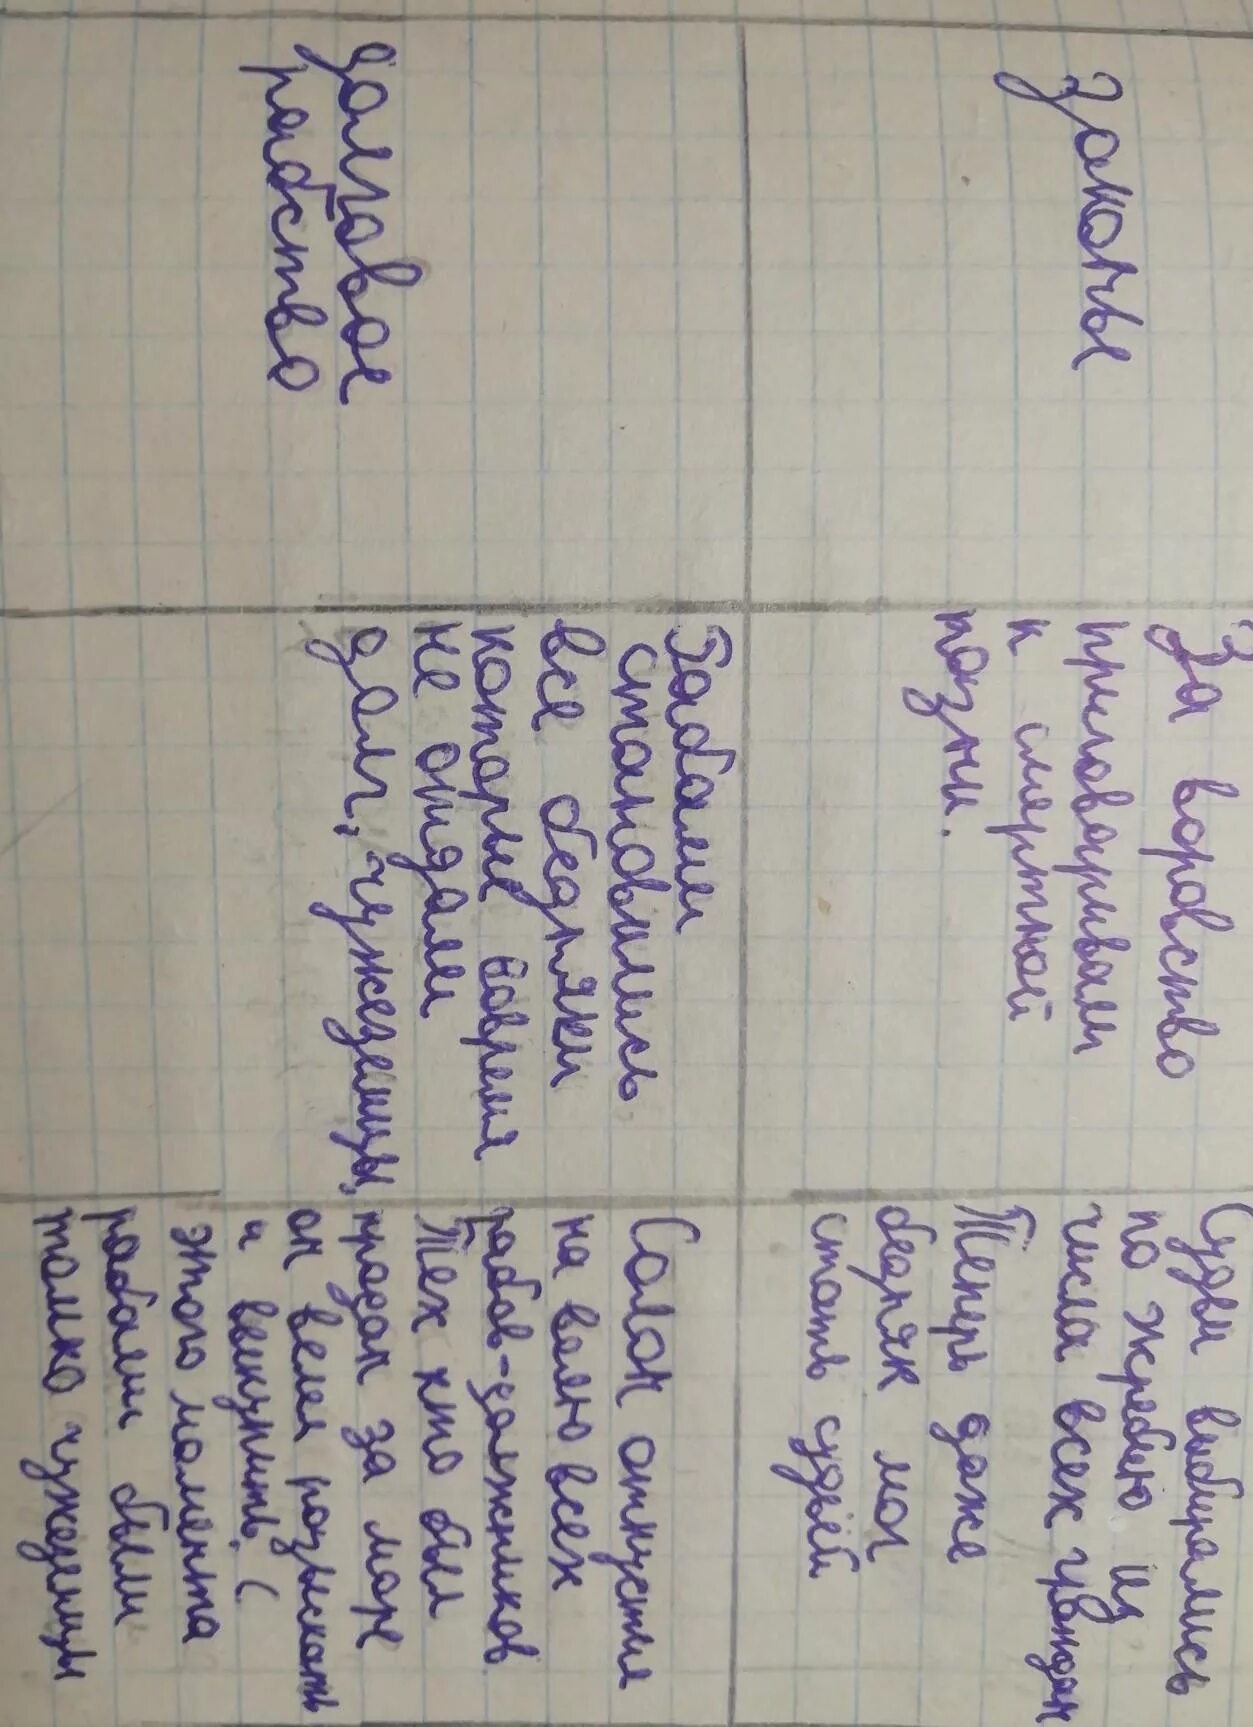 Законы
За воровство
приговаривали
к смертной
казни.
Судьи выбирались
по жребию из
числа всех граждан
Теперь даже
бедняк мог
стать судьёй
долговое
рабство
Рабами
становились
все бедняки
которые вовремя
не отдали
долг, чужеземцы,
Солон отпустил
на волю всех
рабов-должников.
Тех кто был
продан за море
он велел разыскать
и выкупить. С
этого момента
рабами были
только чужеземцы